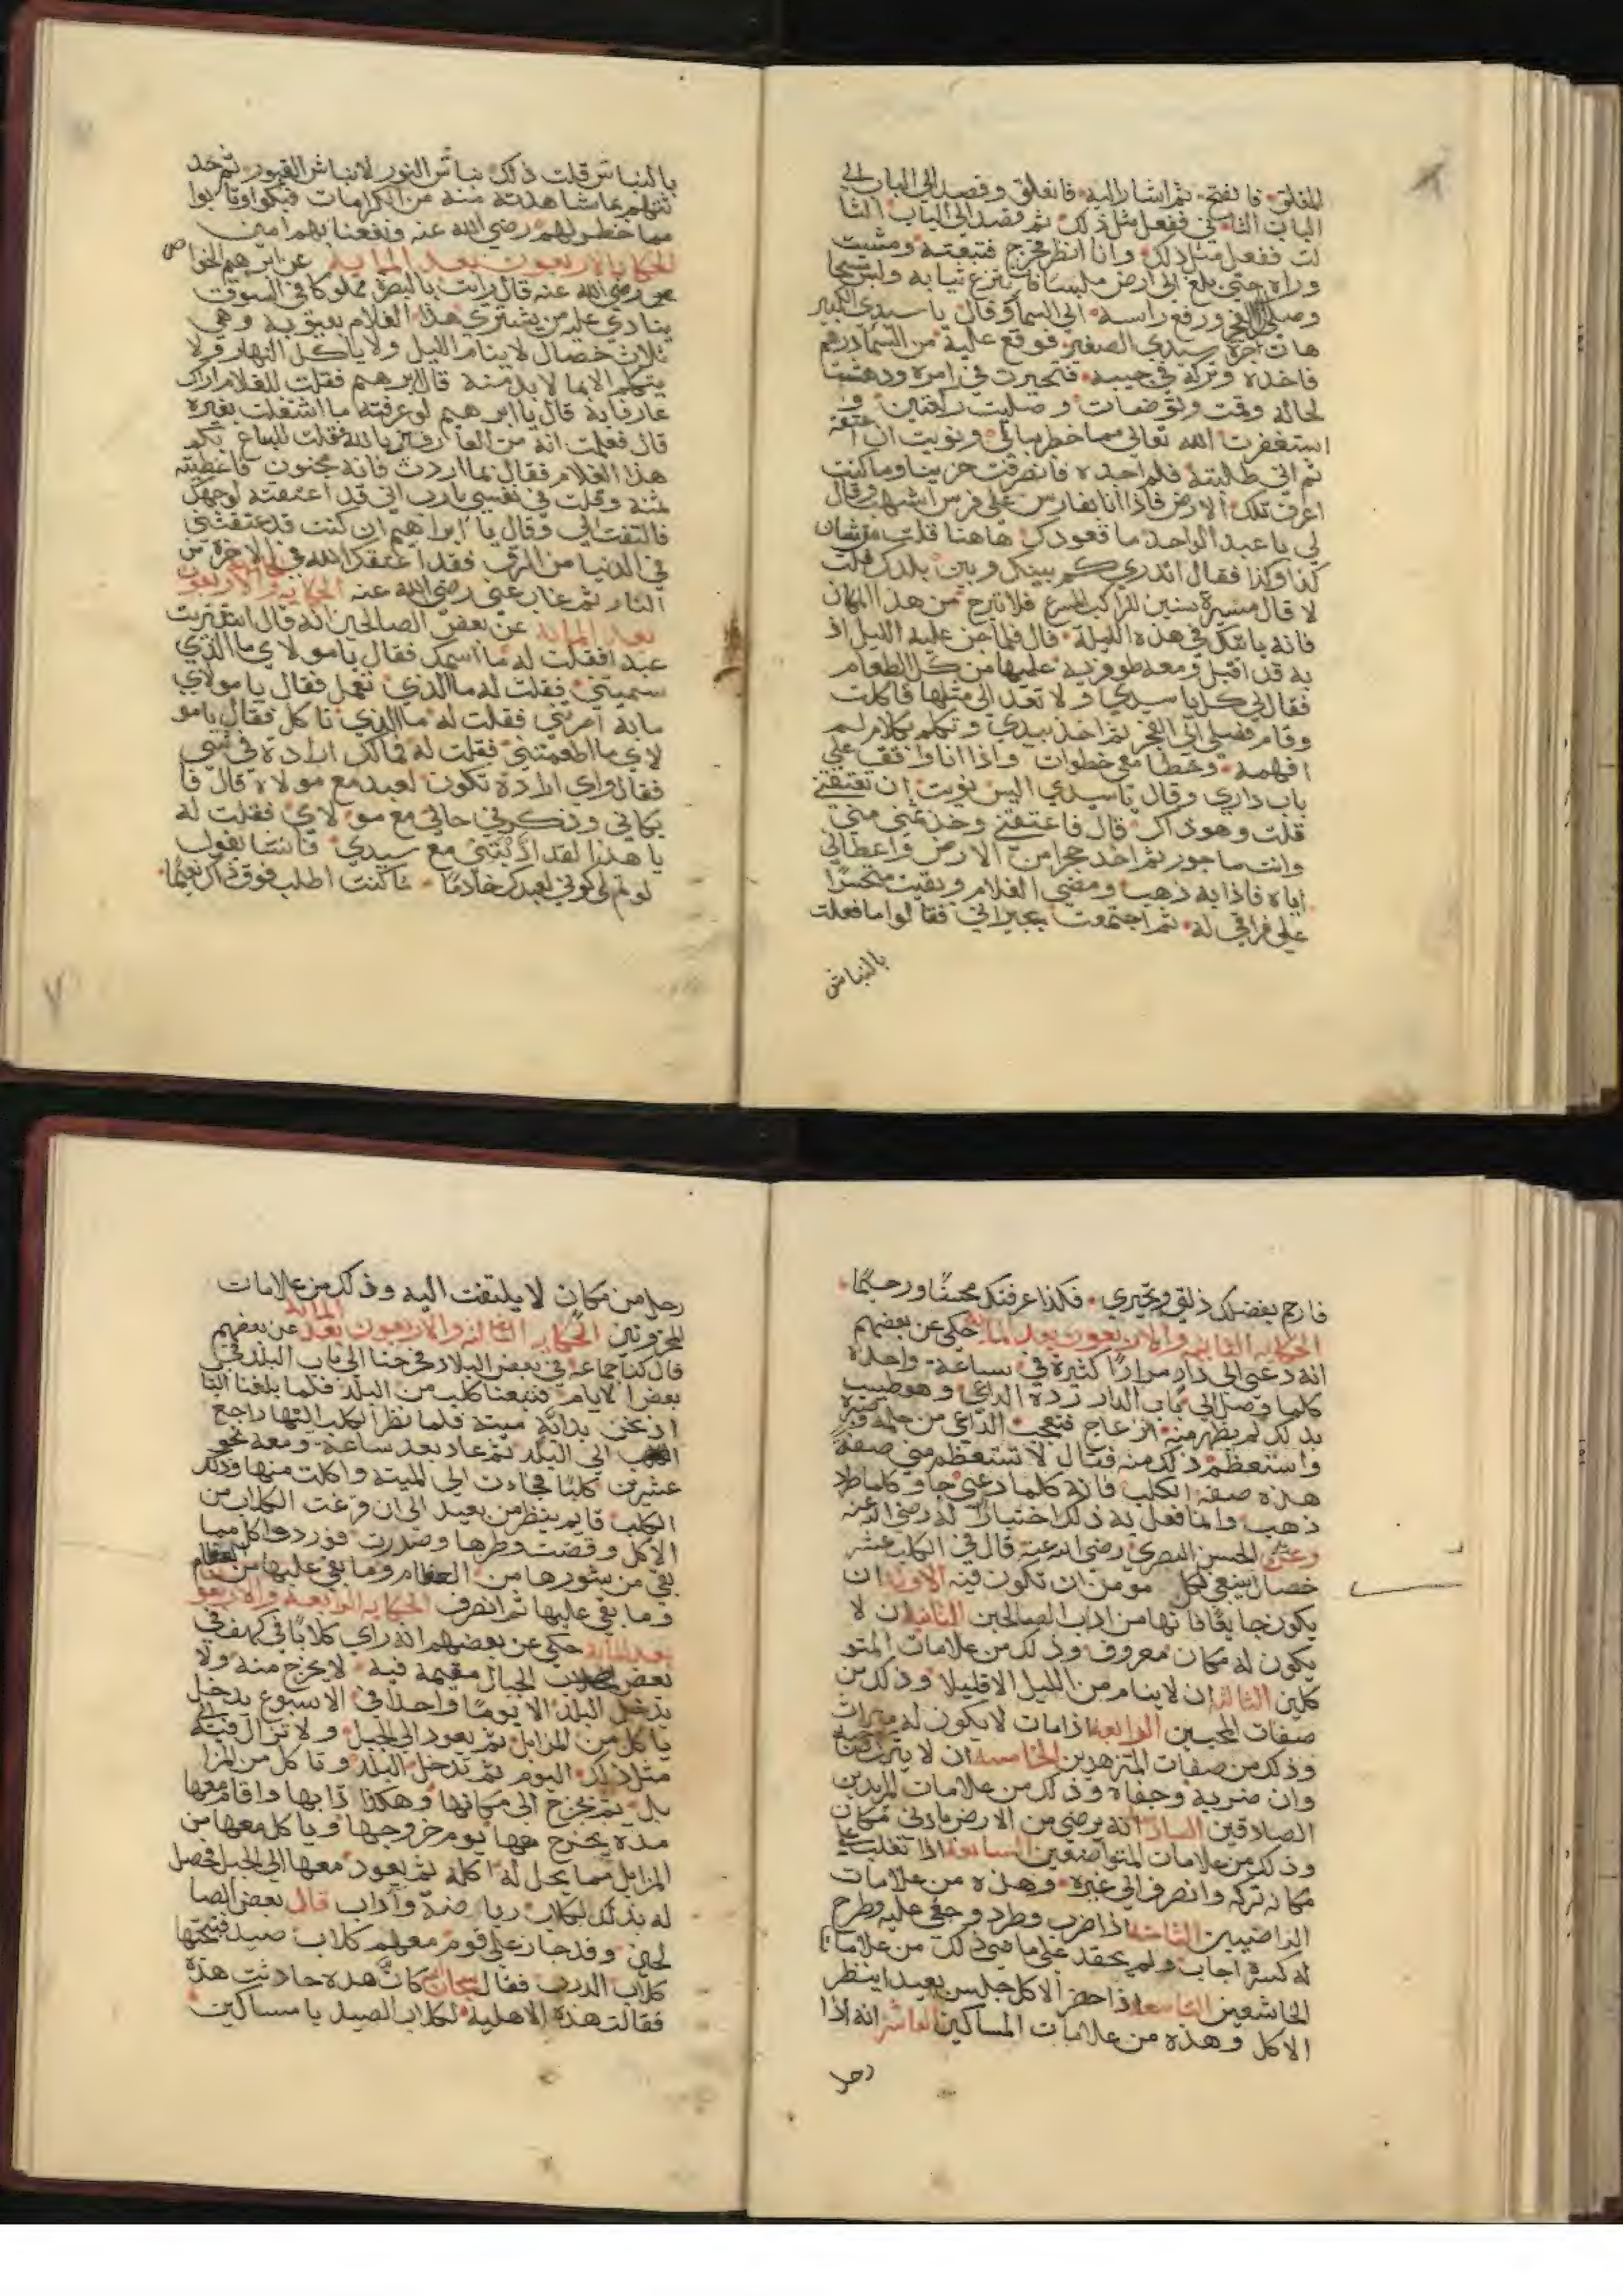 المغلق فانفتح ثم اشار اليه فانغلق وقصد الي الباب الي
الباب الثاني ففعل مثل ذلك ثم قصد الي الباب الثا
لث ففعل مثل ذلك وانا انظر فخرج فتبعته ومشيت
وراه حتي بلغ الي ارض ملبسا فنزع ثيابه ولبس مسحا
وصلي الي الفجر ورفع راسه الي السما وقال يا سيدي الكبير
هات اجرة سيدي الصغير فوقع عليه من السما درهم
فاخذه وتركه في جيبه فتحيرت في امره ودهشت
لحاله وقمت وتوضات وصليت ركعتين و
استغفرت الله تعالي مما خطر ببالي ونويت ان اعتقه
ثم اني طلبته فلم اجده فانصرفت حزينا وما كنت
اعرف تلك الارض فاذا انا بفارس علي فرس اشهب وقال
لي يا عبد الواحد ما قعودك هاهنا قلت من شان
كذا وكذا فقال اتدري كم بينك وبين بلدك قلت
لا قال مسيرة سنين للراكب المسرع فلا تبرح من هذا المكان
فانه ياتيك في هذه الليلة قال فلما جن عليه الليل اذ
به قد اقبل ومعه طوفرية عليها من كل الطعام
فقال لي كل يا سيدي ولا تعد الي مثلها فاكلت
وقام فصلي الي الفجر ثم اخذ بيدي وتكلم بكلام لم
افهمه وخطا معي خطوات واذا انا واقف علي
باب داري وقال يا سيدي اليس نويت ان تعتقني
قلت وهو ذاك قال فاعتقني وخذ ثمني مني
وانت ماجور ثم اخذ حجرا من الارض واعطاني
اياه فاذا به ذهب ومضي الغلام وبقيت متحسرا
علي فراقي له ثم اجتمعت بجيراني فقالوا ما فعلت
بالنباش
بالنباش قلت ذاك نباش النور لا نباش القبور ثم حد
ثتهم بما شاهدته منه من الكرامات فبكوا وتابوا
مما خطر لهم رضي الله عنه ونفعنا بهم امين
الحكاية الاربعون بعد الماية عن ابرهيم الخوا
ص رضي الله عنه قال رايت بالبصرة مملوكا في السوق
ينادي عليه من يشتري هذا الغلام بعيوبه وهي
ثلاث خصال لا ينام الليل ولا ياكل النهار ولا
يتكلم الا بما لا بد منه قال ابرهيم فقلت للغلام اراك
عارفا به قال يا ابرهيم لو عرفته ما اشتغلت بغيره
قال فعلمت انه من العارفين بالله فقلت للبياع بكم
هذا الغلام فقال بما اردت فانه مجنون فاعطيته
ثمنه وقلت في نفسي يا رب اني قد اعتقته لوجهك
فالتفت الي وقال يا ابراهيم ان كنت قد عتقتني
في الدنيا من الرق فقد اعتقك الله في الاخرة من
النار ثم غاب عني رضي الله عنه الحكاية الحادية والاربعون
بعد الماية عن بعض الصالحين انه قال اشتريت
عبدا فقلت له ما اسمك فقال يا مولاي ما الذي
سميتني فقلت له ما الذي تعمل فقال يا مولاي
ما به امرتني فقلت له ما الذي تاكل فقال يا مو
لاي ما اطعمتني فقلت له فما لك ارادة في شي
فقال واي ارادة تكون لعبد مع مولاه قال فا
بكاني وذكرني حالي مع مولاي فقلت له
يا هذا لقد ادبتني مع سيدي فانشا يقول
لو تم لي كوني لعبدك خادما ما كنت اطلب فوق ذاك نعيما
فارحم بفضلك ذلتي وتحيري فكذا عرفتك محسنا ورحيما
الحكاية الثانية والاربعون بعد الماية حكي عن بعضهم
انه دعي الي دار مرارا كثيرة في ساعة واحدة
كلما وصل الي باب الدار رده الداعي وهو طيب
بذلك لم يظهر منه انزعاج فتعجب الداعي من حلمه وصبره
واستعظم ذلك منه فقال لا تستعظم مني صفة
هذه صفة الكلب فانه كلما دعي جا وكلما طرد
ذهب وانما فعل به ذلك اختبارا له رضي الله عنه
وعن الحسن البصري رضي الله عنه قال في الكلب عشر
خصال ينبغي لكل مومن ان تكون فيه الاولي ان
يكون جايعا فانها من اداب الصالحين الثانية ان لا
يكون له مكان معروف وذلك من علامات المتو
كلين الثالثة ان لا ينام من الليل الا قليلا وذلك من
صفات المحبين الرابعة اذا مات لا يكون له ميراث
وذلك من صفات المتزهدين الخامسة ان لا يترك صاحبه
وان ضربه وجفاه وذلك من علامات المريدين
الصادقين السادسة انه يرضي من الارض بادني مكان
وذلك من علامات المتواضعين السابعة اذا تغلب علي
مكانه تركه وانصرف الي غيره وهذه من علامات
الراضيين الثامنة اذا ضرب وطرد وجفي عليه وطرح
له كسرة اجاب ولم يحقد علي ما مضي وذلك من علامات
الخاشعين التاسعة اذا حضر الاكل جلس بعيدا ينظر
الاكل وهذه من علامات المساكين العاشرة انه اذا
رحل
رحل من مكان لا يلتفت اليه وذلك من علامات
المحزونين الحكاية الثالثة والاربعون بعد الماية عن بعضهم
قال كنا جماعة في بعض البلاد فخرجنا الي باب البلد في
بعض الايام فتبعنا كلب من البلد فلما بلغنا البا
اذ نحن بدابة ميتة فلما نظر الكلب اليها راجع
الي البلد ثم عاد بعد ساعة ومعه نحو
عشرين كلبا فجاءت الي الميتة واكلت منها وذلك
الكلب قايم ينظر من بعيد الي ان فرغت الكلاب من
الاكل وقضت وطرها وصدرت فورد واكل مما
بقي من سورها من العظام وما بقي عليها من العظام
وما بقي عليها ثم انصرف الحكاية الرابعة والاربعو
بعد الماية حكي عن بعضهم انه راي كلابا في كهف في
بعض الجبال مقيمة فيه لا يخرج منه ولا
يدخل البلد الا يوما واحدا في الاسبوع يدخل
ياكل من المزابل ثم يعود الي الجبل ولا تزال فيه الي
مثل ذلك اليوم ثم تدخل البلد وتاكل من المزا
بل ثم يخرج الي مكانها وهكذا دابها واقام معها
مدة يخرج معها يوم خروجها وياكل معها من
المزابل مما يحل له اكله ثم يعود معها الي الجبل فحصل
له بذلك الكلاب رياضة وآداب قال بعض الصا
لحين وقد جاز علي قوم معهم كلاب صيد فنبحتها
كلاب الدرب فقال سبحان الله كان هذه حادثت هذه
فقالت هذه الاهلية لكلاب الصيد يا مساكين